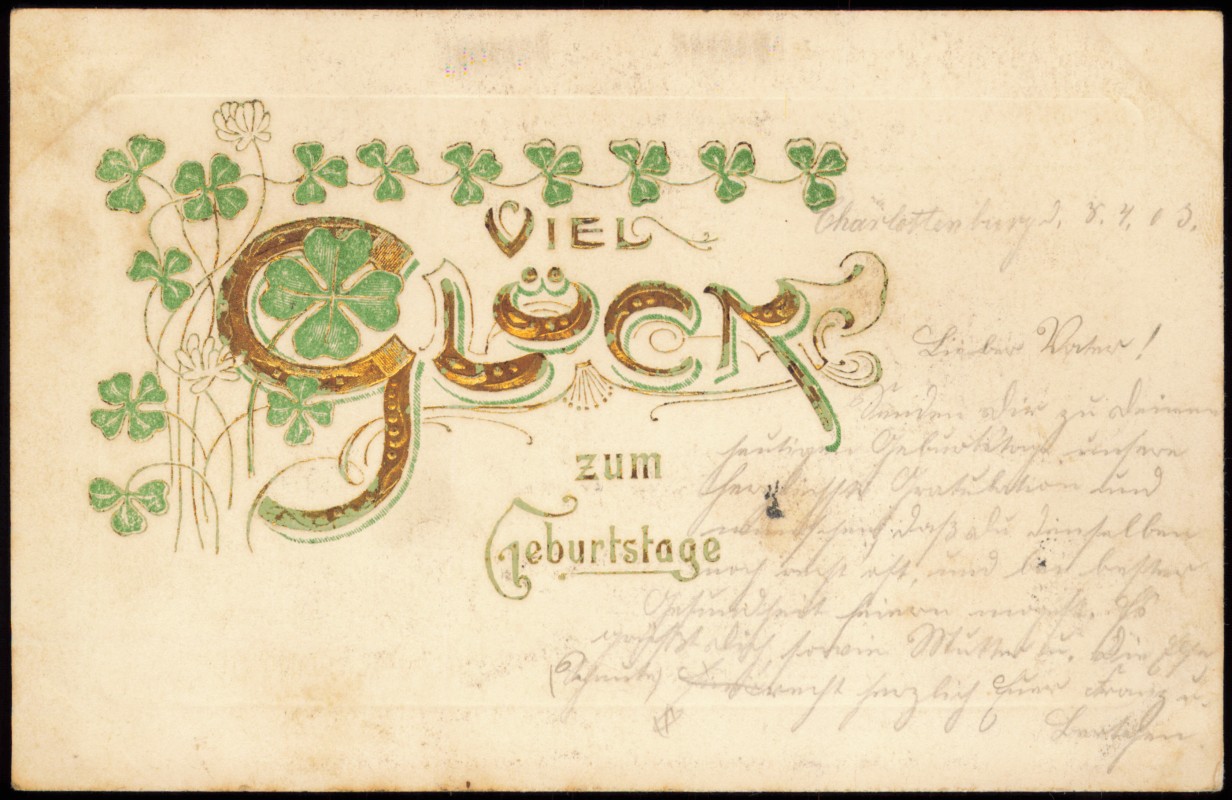 VIEL
GLÜCK
zum
Geburtstage
Charlottenburg, d. 8. 4. 03.
Lieber Vater!
Senden Dir zu Deinem
heutigen Geburtstage unsere
herzlichste Gratulation und
wünschen daß du denselben
noch recht oft, und bei bester
Gesundheit feiern mögest. Es
grüßt Dich, sowie Mutter u. Die
recht herzlich Euer Franz u.